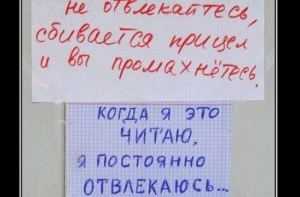 не отвлекайтесь,
сбивается прицел
и вы промахнётесь.
КОГДА Я ЭТО
ЧИТАЮ,
Я ПОСТОЯННО
ОТВЛЕКАЮСЬ...